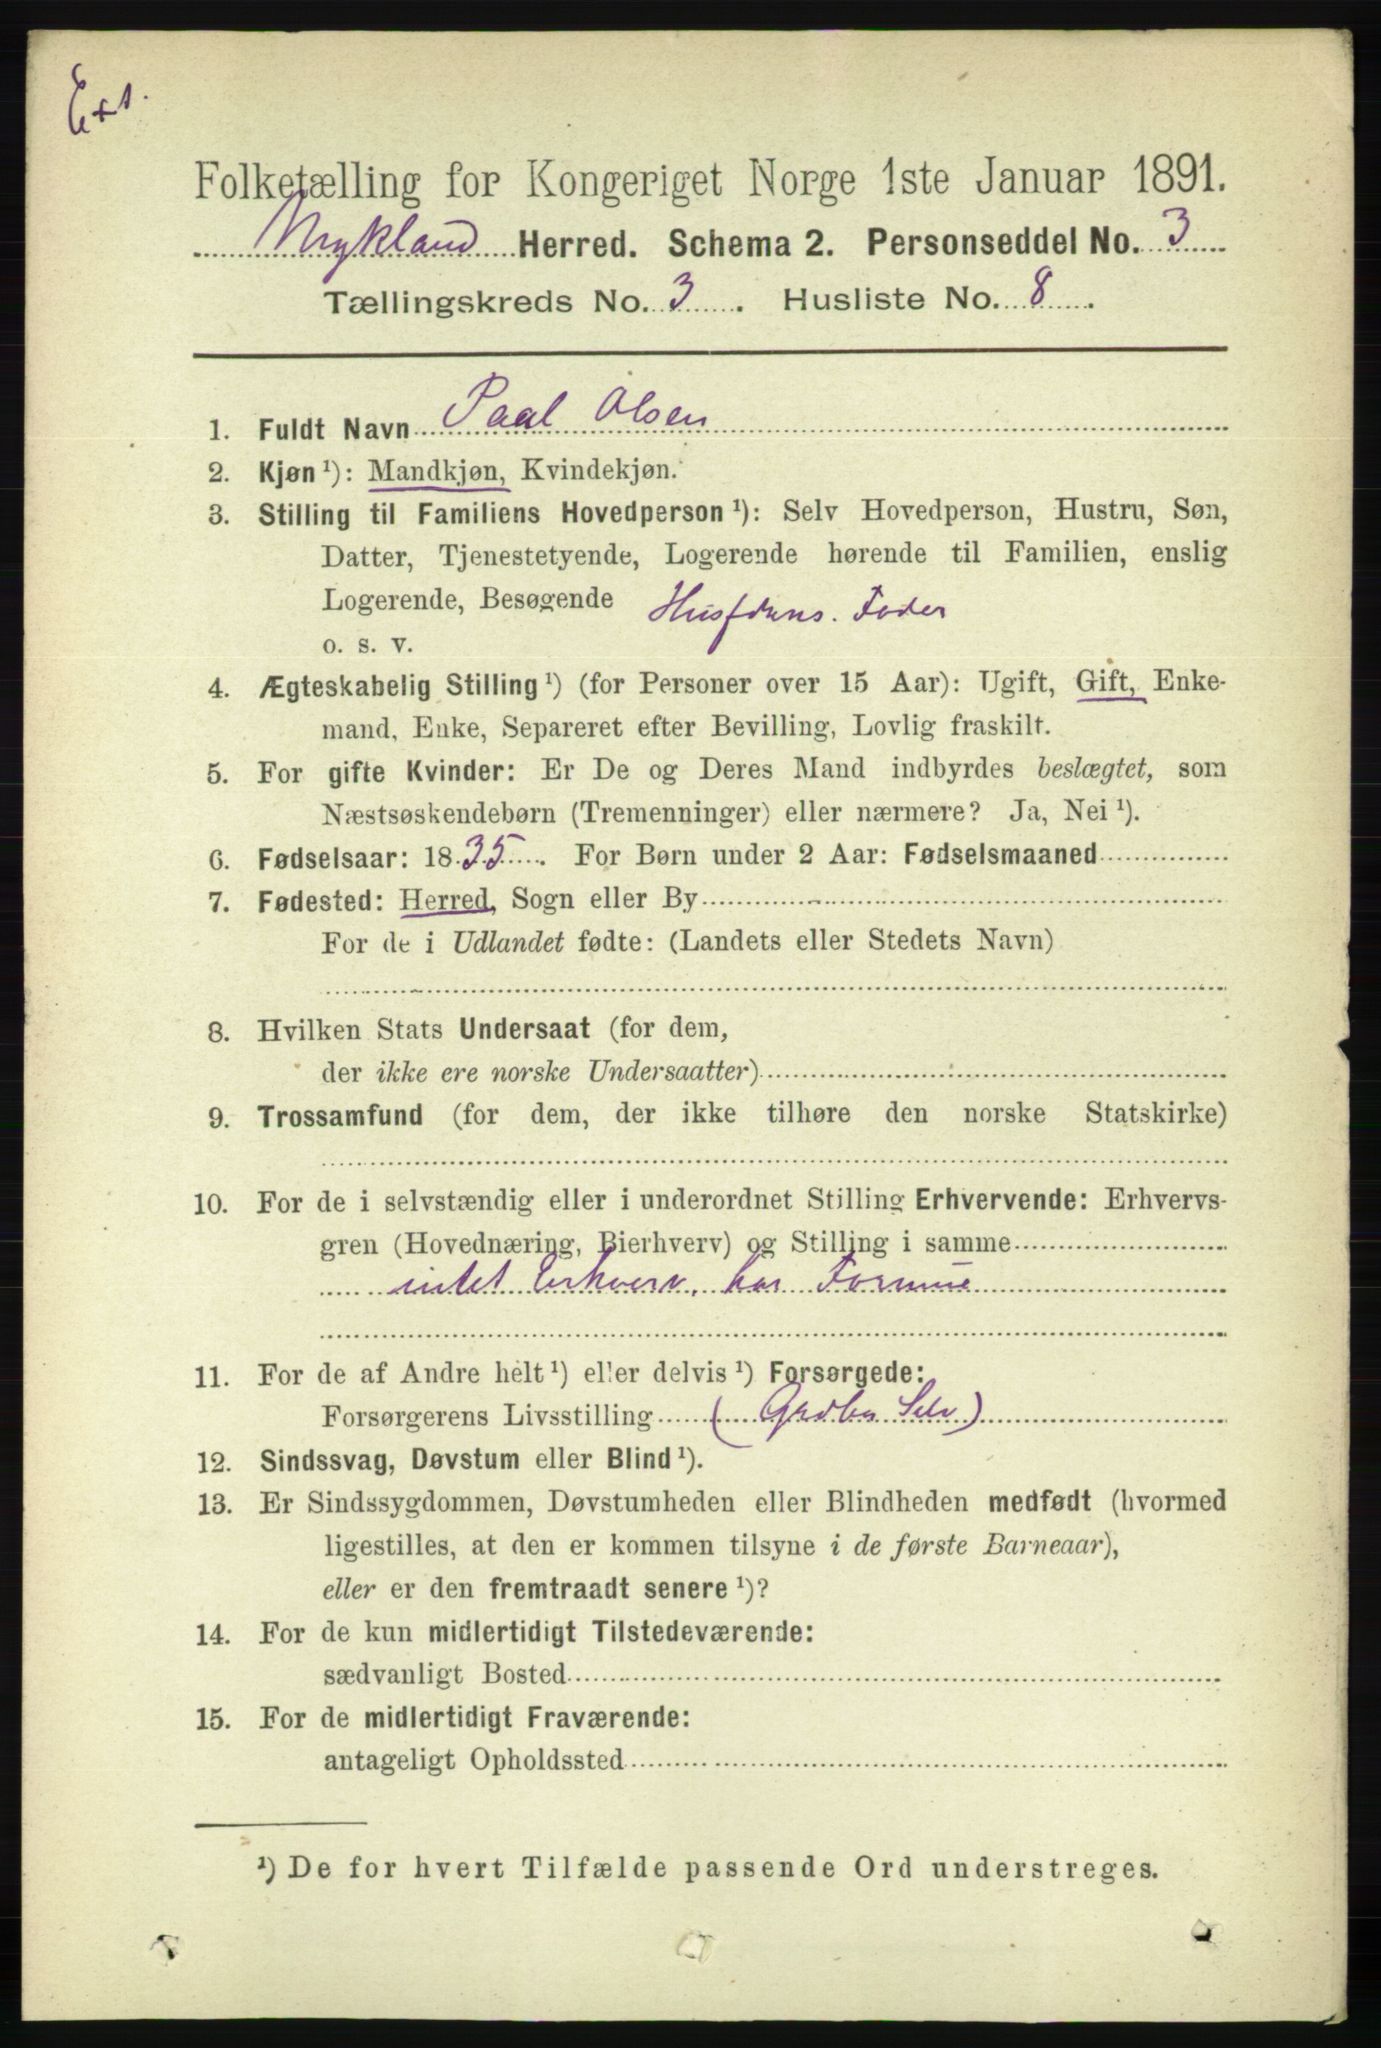 Ext.
Folketælling for Kongeriget Norge 1ste Januar 1891.
Mykland Herred. Schema 2. Personseddel No. 3
Tællingskreds No. 3. Husliste No. 8.
1. Fuldt Navn Paal Olsen
2. Kjøn ¹): Mandkjøn, Kvindekjøn.
3. Stilling til Familiens Hovedperson ¹): Selv Hovedperson, Hustru, Søn,
Datter, Tjenestetyende, Logerende hørende til Familien, enslig
Logerende, Besøgende Fader
o. s. v.
4. Ægteskabelig Stilling ¹) (for Personer over 15 Aar): Ugift, Gift, Enke-
mand, Enke, Separeret efter Bevilling, Lovlig fraskilt.
5. For gifte Kvinder: Er De og Deres Mand indbyrdes beslægtet, som
Næstsøskendebørn (Tremenninger) eller nærmere? Ja, Nei ¹).
6. Fødselsaar: 1835. For Børn under 2 Aar: Fødselsmaaned
7. Fødested: Herred, Sogn eller By
For de i Udlandet fødte: (Landets eller Stedets Navn)
8. Hvilken Stats Undersaat (for dem,
der ikke ere norske Undersaatter)
9. Trossamfund (for dem, der ikke tilhøre den norske Statskirke)
10. For de i selvstændig eller i underordnet Stilling Erhvervende: Erhvervs-
gren (Hovednæring, Bierhverv) og Stilling i samme
intet Erhverv, har Formue
11. For de af Andre helt ¹) eller delvis ¹) Forsørgede:
Forsørgerens Livsstilling (Grdbr Selv)
12. Sindssvag, Døvstum eller Blind ¹).
13. Er Sindssygdommen, Døvstumheden eller Blindheden medfødt (hvormed
ligestilles, at den er kommen tilsyne i de første Barneaar),
eller er den fremtraadt senere ¹)?
14. For de kun midlertidigt Tilstedeværende:
sædvanligt Bosted
15. For de midlertidigt Fraværende:
antageligt Opholdssted
¹) De for hvert Tilfælde passende Ord understreges.